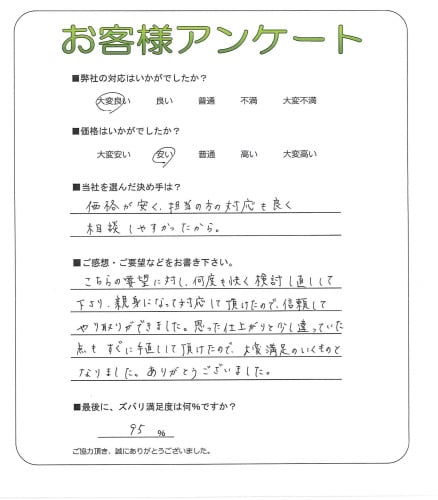 お客様アンケート
■弊社の対応はいかがでしたか？
大変良い 良い 普通 不満 大変不満
■価格はいかがでしたか？
大変安い 安い 普通 高い 大変高い
■当社を選んだ決め手は？
価格が安く、担当の方の対応も良く
相談しやすかったから。
■ご感想・ご要望などをお書き下さい。
こちらの要望に対し、何度も快く検討し直しして
下さり、親身になって対応して頂けたので、信頼して
やり取りができました。思った仕上がりと少し違っていた
点もすぐに手直しして頂けたので、大変満足のいくものと
なりました。ありがとうございました。
■最後に、ズバリ満足度は何％ですか？
95 %
ご協力頂き、誠にありがとうございました。